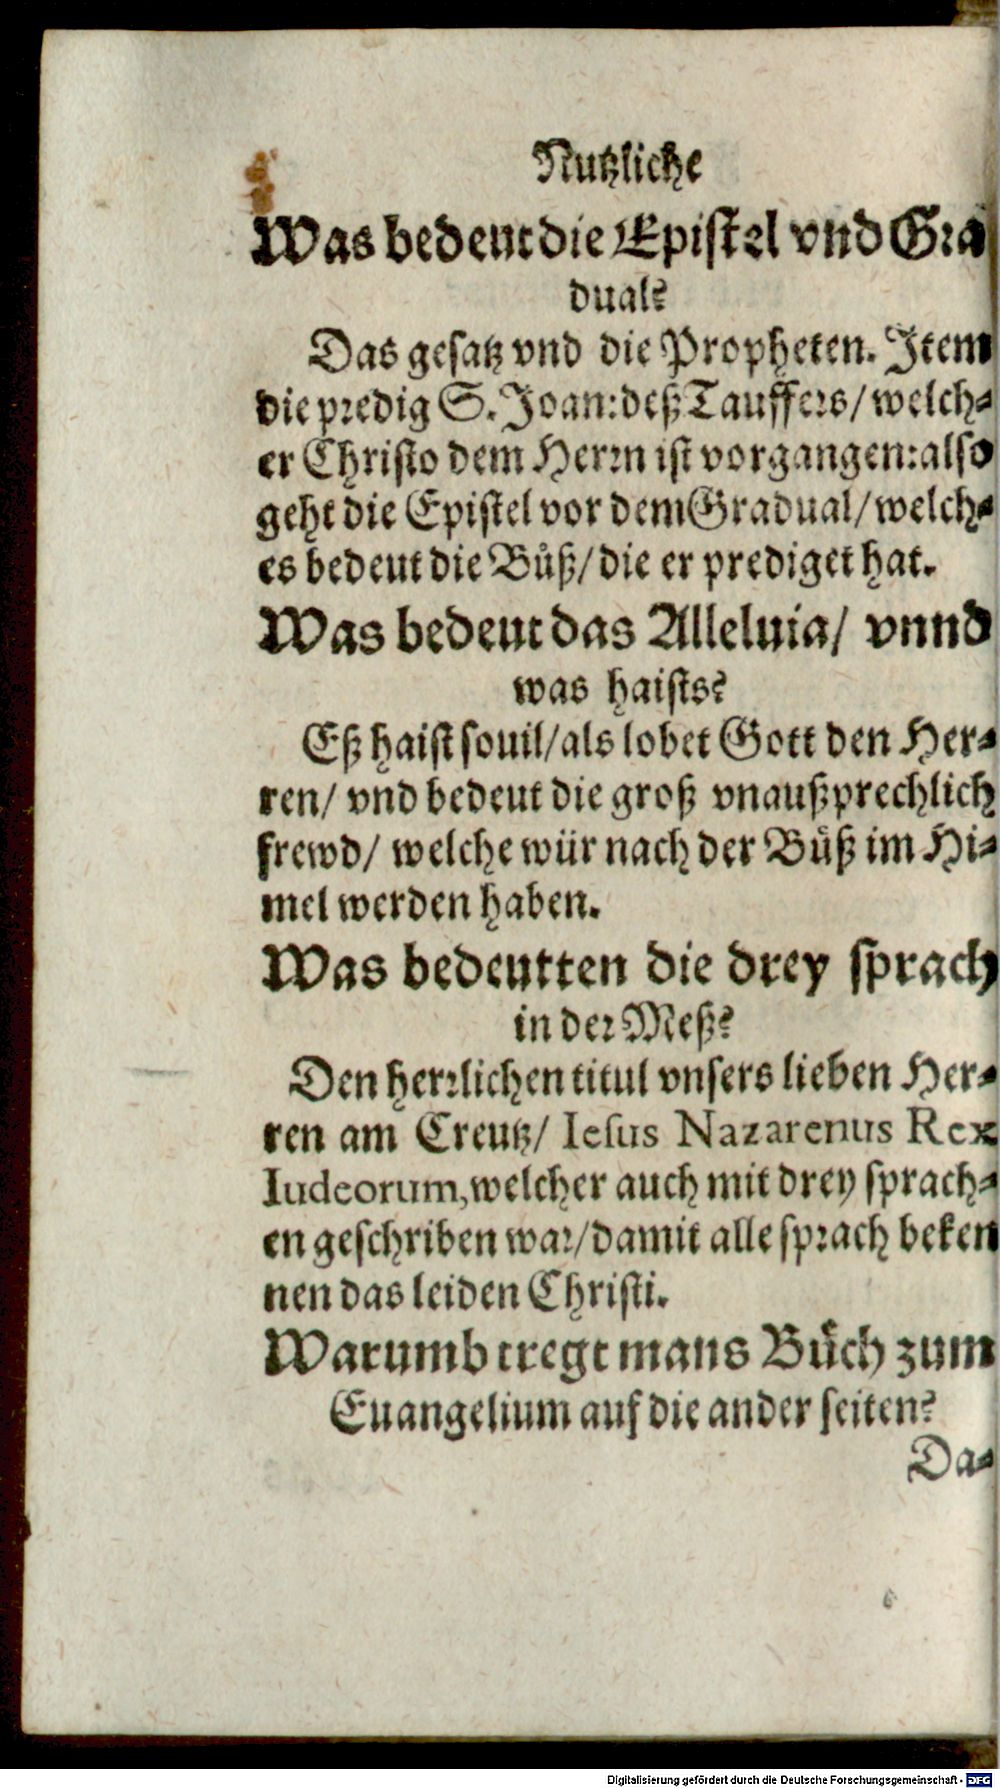 Nutzliche
Was bedeut die Epistel vnd Gra
dual?
Das gesatz vnd die Propheten. Item
die predig S. Joan: deß Tauffers/ welch-
er Christo dem Herrn ist vorgangen: also
geht die Epistel vor dem Gradual/ welch-
es bedeut die Bůß/ die er prediget hat.
Was bedeut das Alleluia/ vnnd
was haists?
Eß haist souil/ als lobet Gott den Her-
ren/ vnd bedeut die groß vnaußprechlich
frewd/ welche wür nach der Bůß im Hi-
mel werden haben.
Was bedeutten die drey sprach
in der Meß?
Den herrlichen titul vnsers lieben Her-
ren am Creutz/ Iesus Nazarenus Rex
Iudeorum, welcher auch mit drey sprach-
en geschriben war/ damit alle sprach beken
nen das leiden Christi.
Warumb tregt mans Bůch zum
Euangelium auf die ander seiten?
Da-
Digitalisierung gefördert durch die Deutsche Forschungsgemeinschaft - DFG